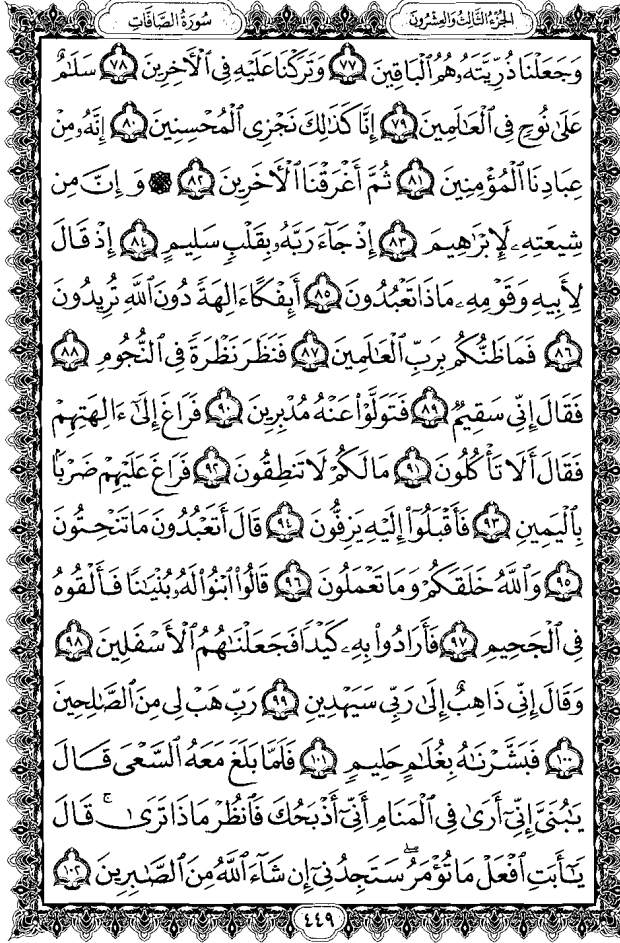 سُورَةُ الصَّافَّاتِ
الجُزْءُ الثَّالِثُ وَالعِشْرُونَ
وَجَعَلْنَا ذُرِّيَّتَهُۥ هُمُ ٱلْبَاقِينَ ٧٧ وَتَرَكْنَا عَلَيْهِ فِى ٱلْأَخِرِينَ ٧٨ سَلَٰمٌ
عَلَىٰ نُوحٍ فِى ٱلْعَٰلَمِينَ ٧٩ إِنَّا كَذَٰلِكَ نَجْزِى ٱلْمُحْسِنِينَ ٨٠ إِنَّهُۥ مِنْ
عِبَادِنَا ٱلْمُؤْمِنِينَ ٨١ ثُمَّ أَغْرَقْنَا ٱلْأَخَرِينَ ٨٢ ۞ وَإِنَّ مِن
شِيعَتِهِۦ لَإِبْرَٰهِيمَ ٨٣ إِذْ جَآءَ رَبَّهُۥ بِقَلْبٍ سَلِيمٍ ٨٤ إِذْ قَالَ
لِأَبِيهِ وَقَوْمِهِۦ مَاذَا تَعْبُدُونَ ٨٥ أَئِفْكًا ءَالِهَةً دُونَ ٱللَّهِ تُرِيدُونَ
٨٦ فَمَا ظَنُّكُم بِرَبِّ ٱلْعَٰلَمِينَ ٨٧ فَنَظَرَ نَظْرَةً فِى ٱلنُّجُومِ ٨٨
فَقَالَ إِنِّى سَقِيمٌ ٨٩ فَتَوَلَّوْا۟ عَنْهُ مُدْبِرِينَ ٩٠ فَرَاغَ إِلَىٰٓ ءَالِهَتِهِمْ
فَقَالَ أَلَا تَأْكُلُونَ ٩١ مَا لَكُمْ لَا تَنطِقُونَ ٩٢ فَرَاغَ عَلَيْهِمْ ضَرْبًۢا
بِٱلْيَمِينِ ٩٣ فَأَقْبَلُوٓا۟ إِلَيْهِ يَزِفُّونَ ٩٤ قَالَ أَتَعْبُدُونَ مَا تَنْحِتُونَ
٩٥ وَٱللَّهُ خَلَقَكُمْ وَمَا تَعْمَلُونَ ٩٦ قَالُوا۟ ٱبْنُوا۟ لَهُۥ بُنْيَٰنًا فَأَلْقُوهُ
فِى ٱلْجَحِيمِ ٩٧ فَأَرَادُوا۟ بِهِۦ كَيْدًا فَجَعَلْنَٰهُمُ ٱلْأَسْفَلِينَ ٩٨
وَقَالَ إِنِّى ذَاهِبٌ إِلَىٰ رَبِّى سَيَهْدِينِ ٩٩ رَبِّ هَبْ لِى مِنَ ٱلصَّٰلِحِينَ
١٠٠ فَبَشَّرْنَٰهُ بِغُلَٰمٍ حَلِيمٍ ١٠١ فَلَمَّا بَلَغَ مَعَهُ ٱلسَّعْىَ قَالَ
يَٰبُنَىَّ إِنِّىٓ أَرَىٰ فِى ٱلْمَنَامِ أَنِّىٓ أَذْبَحُكَ فَٱنظُرْ مَاذَا تَرَىٰ ۚ قَالَ
يَٰٓأَبَتِ ٱفْعَلْ مَا تُؤْمَرُ ۖ سَتَجِدُنِىٓ إِن شَآءَ ٱللَّهُ مِنَ ٱلصَّٰبِرِينَ ١٠٢
٤٤٩